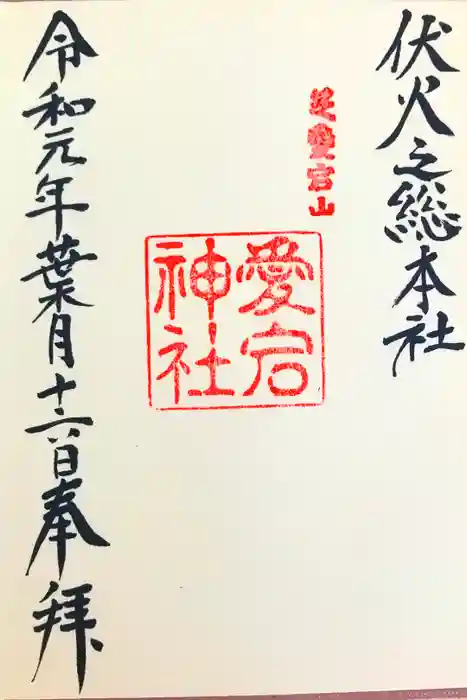 伏火之総本社
愛宕山
愛宕
神社
令和元年葉月十六日奉拝